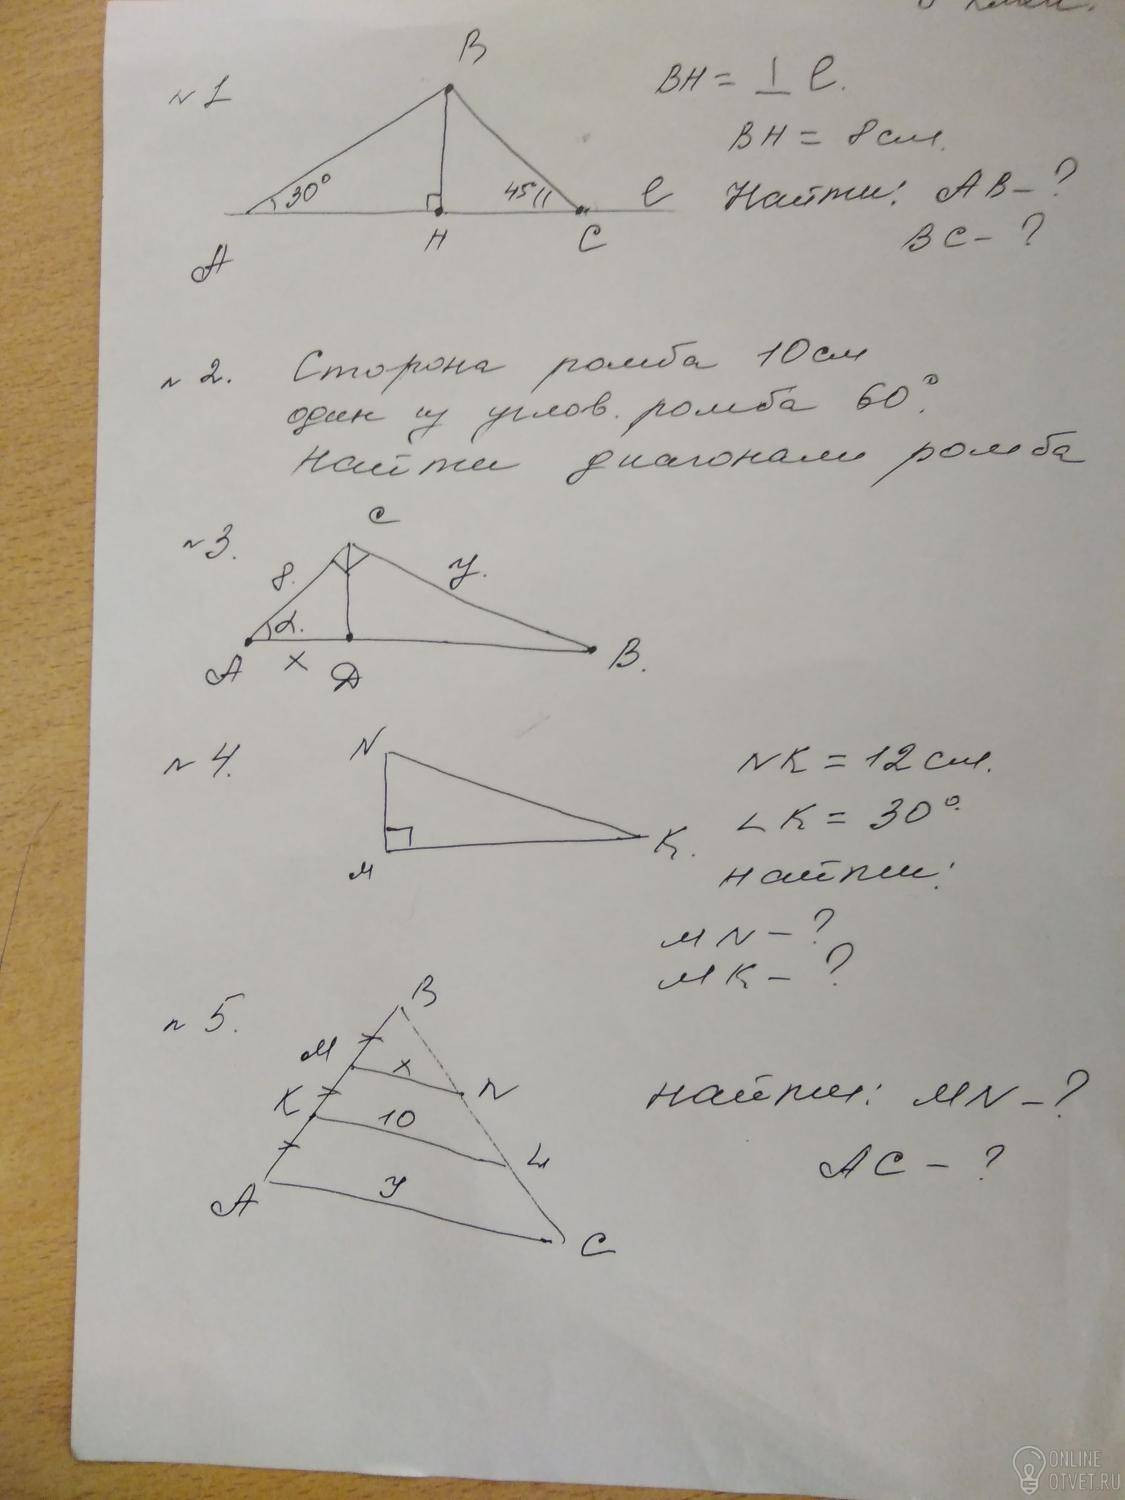 №1
B
30°
45°
H
C
ℓ
A
BH = ⊥ ℓ.
BH = 8см.
Найти: AB – ?
BC – ?
№2. Сторона ромба 10см
один из углов. ромба 60°.
Найти диагонали ромба
№3.
C
8.
y.
α.
A
x
D
B.
№4.
N
M
K.
NK = 12см.
∠K = 30°.
Найти:
MN – ?
MK – ?
№5.
B
M
x
N
K
10
L
A
y
C
Найти: MN – ?
AC – ?
ONLINE
OTVET.RU